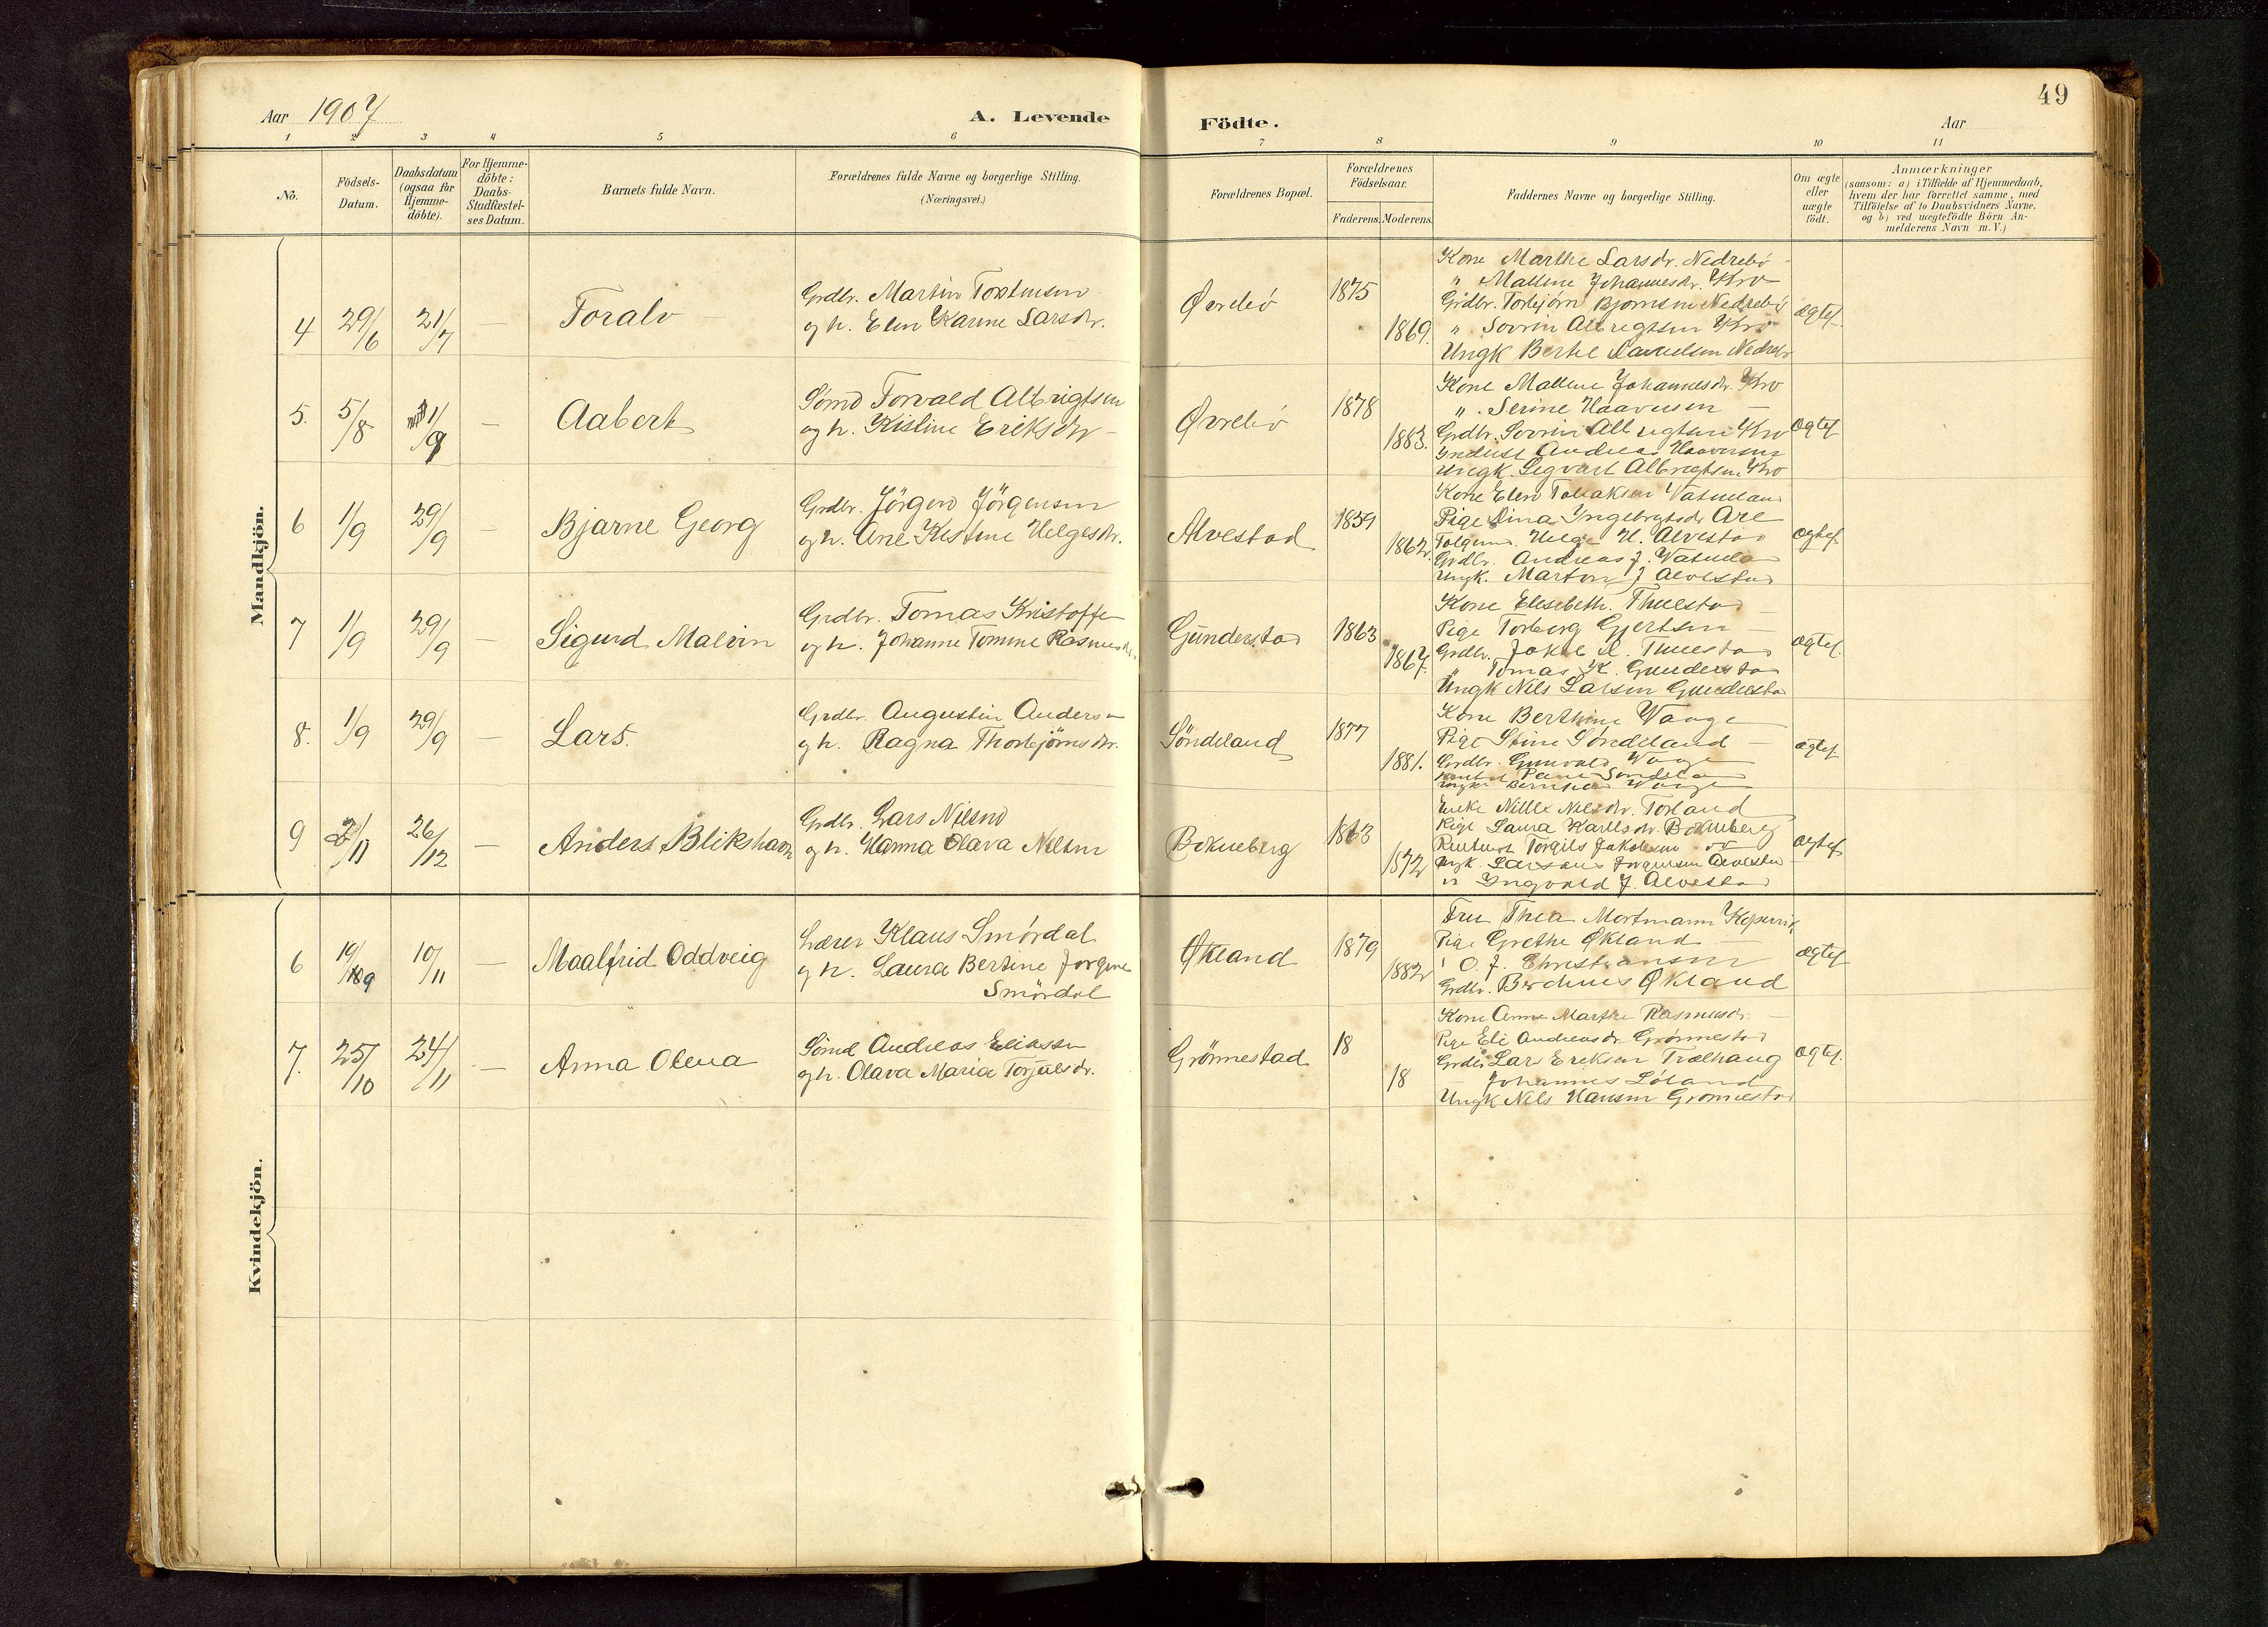 49
Aar 1907
A. Levende
Födte.
Aar
1 2 3 4 5 6 7 8 9 10 11
No.
Födsels-
Datum.
Daabsdatum
(ogsaa for
Hjemme-
döbte).
For Hjemme-
döbte:
Daabs-
Stadfæstel-
ses Datum.
Barnets fulde Navn.
Forældrenes fulde Navne og borgerlige Stilling.
(Næringsvei.)
Forældrenes Bopæl.
Forældrenes
Födselsaar.
Faderens. Moderens.
Faddernes Navne og borgerlige Stilling.
Om ægte
eller
uægte
födt.
Anmærkninger
(saasom: a) i Tilfælde af Hjemmedaab,
hvem der har forrettet samme, med
Tilföielse af to Daabsvidners Navne.
og b) ved uægtefödte Börn An-
melderens Navn m.V.)
Mandkjön.
4 29/6 21/7 — Toralv
Grdbr. Martin Torstensen
og h. Elen Karine Larsdr.
Øvrebö 1875 1869.
Kone Marthe Larsdr. Nedrebö
" Malline Johannesdr. Kro
Grdbr. Torbjörn Bjornsen Nedrebö
" Sovrin Albregtsen Kro
Ungk Bertel Danielsen Nedrebö
ægtef.
5. 5/8 1/9 — Aabert
Sömd Torvald Albrigtsen
og h. Kistine Eriksdr
Øvrebö 1878 1883.
Kone Malline Johannesdr. Kro
" Serine Haaversen —
Grdbr. Sovrin Albregtsen Kro
Andreas Haaversen
Ungk. Sigvart Albregtsen Kro
ægtef
6 1/9 29/9 — Bjarne Georg
Grdbr. Jörgen Jörgensen
og h. Ane Kistine Helgesdr.
Alvestad 1859 1862.
Kone Elen Tollaksen Vatneland
Pige Dina Ingebrigtsdr Are
Helge H. Alvestad
Grdbr. Andreas J. Vatnela
Ungk. Marton J Alvestad
ægtef
7 1/9 29/9 — Sigurd Malvin
Grdbr. Tomas Kristoffe
og h. Johanne Tomine Rasmusdr.
Gunderstad 1863 1867.
Kone Elesebeth. Thuestad
Pige Torborg Gjertsen
Grdbr. Jakob A. Thuestad
" Tomas K. Gundersta
Ungk Nils Larsen Gundersta
ægtef.
8. 1/9 29/9 — Lars.
Grdbr. Augustin Anderse
og h. Ragna Thorbjörnsdr.
Söndeland 1877 1881.
Kone Berthine Vaage
Pige Stine Söndeland —
Grdbr. Gunvald Vaage
ægtef
9 2/11 26/12 — Anders Blikshavn
Grdbr. Lars Nilsen
og h. Hanna Olava Nilsen
Bokneberg 1863 1872
Enke Nille Nilsdr. Torland
Pige Laura Karlsdr. Bokneberg
Torgils Jakobsen
Ungk. Larsens Jorgensen Alvestad
" Ingvald J. Alvestad
ægtef
Kvindekjön.
6 19/9 10/11 — Maalfrid Oddveig
Lærer Klaus Smördal
og h. Laura Bertine Jorgine
Smördal
Økland 1879 1882
Fru Thea Mortmann Kopervik
Pige Grethe Økland —
O. J. Christiansen
Grdbr. Berdines Økland
ægtef
7. 25/10 24/11 — Anna Olena
Sömd Andreas Eliassen
og h. Olava Maria Torjulsdr.
Grönnestad 18 18
Kone Anne Marthe Rasmusdr —
Pige Eli Andreasdr Grönnestad
Grdbr Lars Eriksen Trælhaug
— Johannes Löland
Ungk Nils Hansen Gronnesta
ægtef.